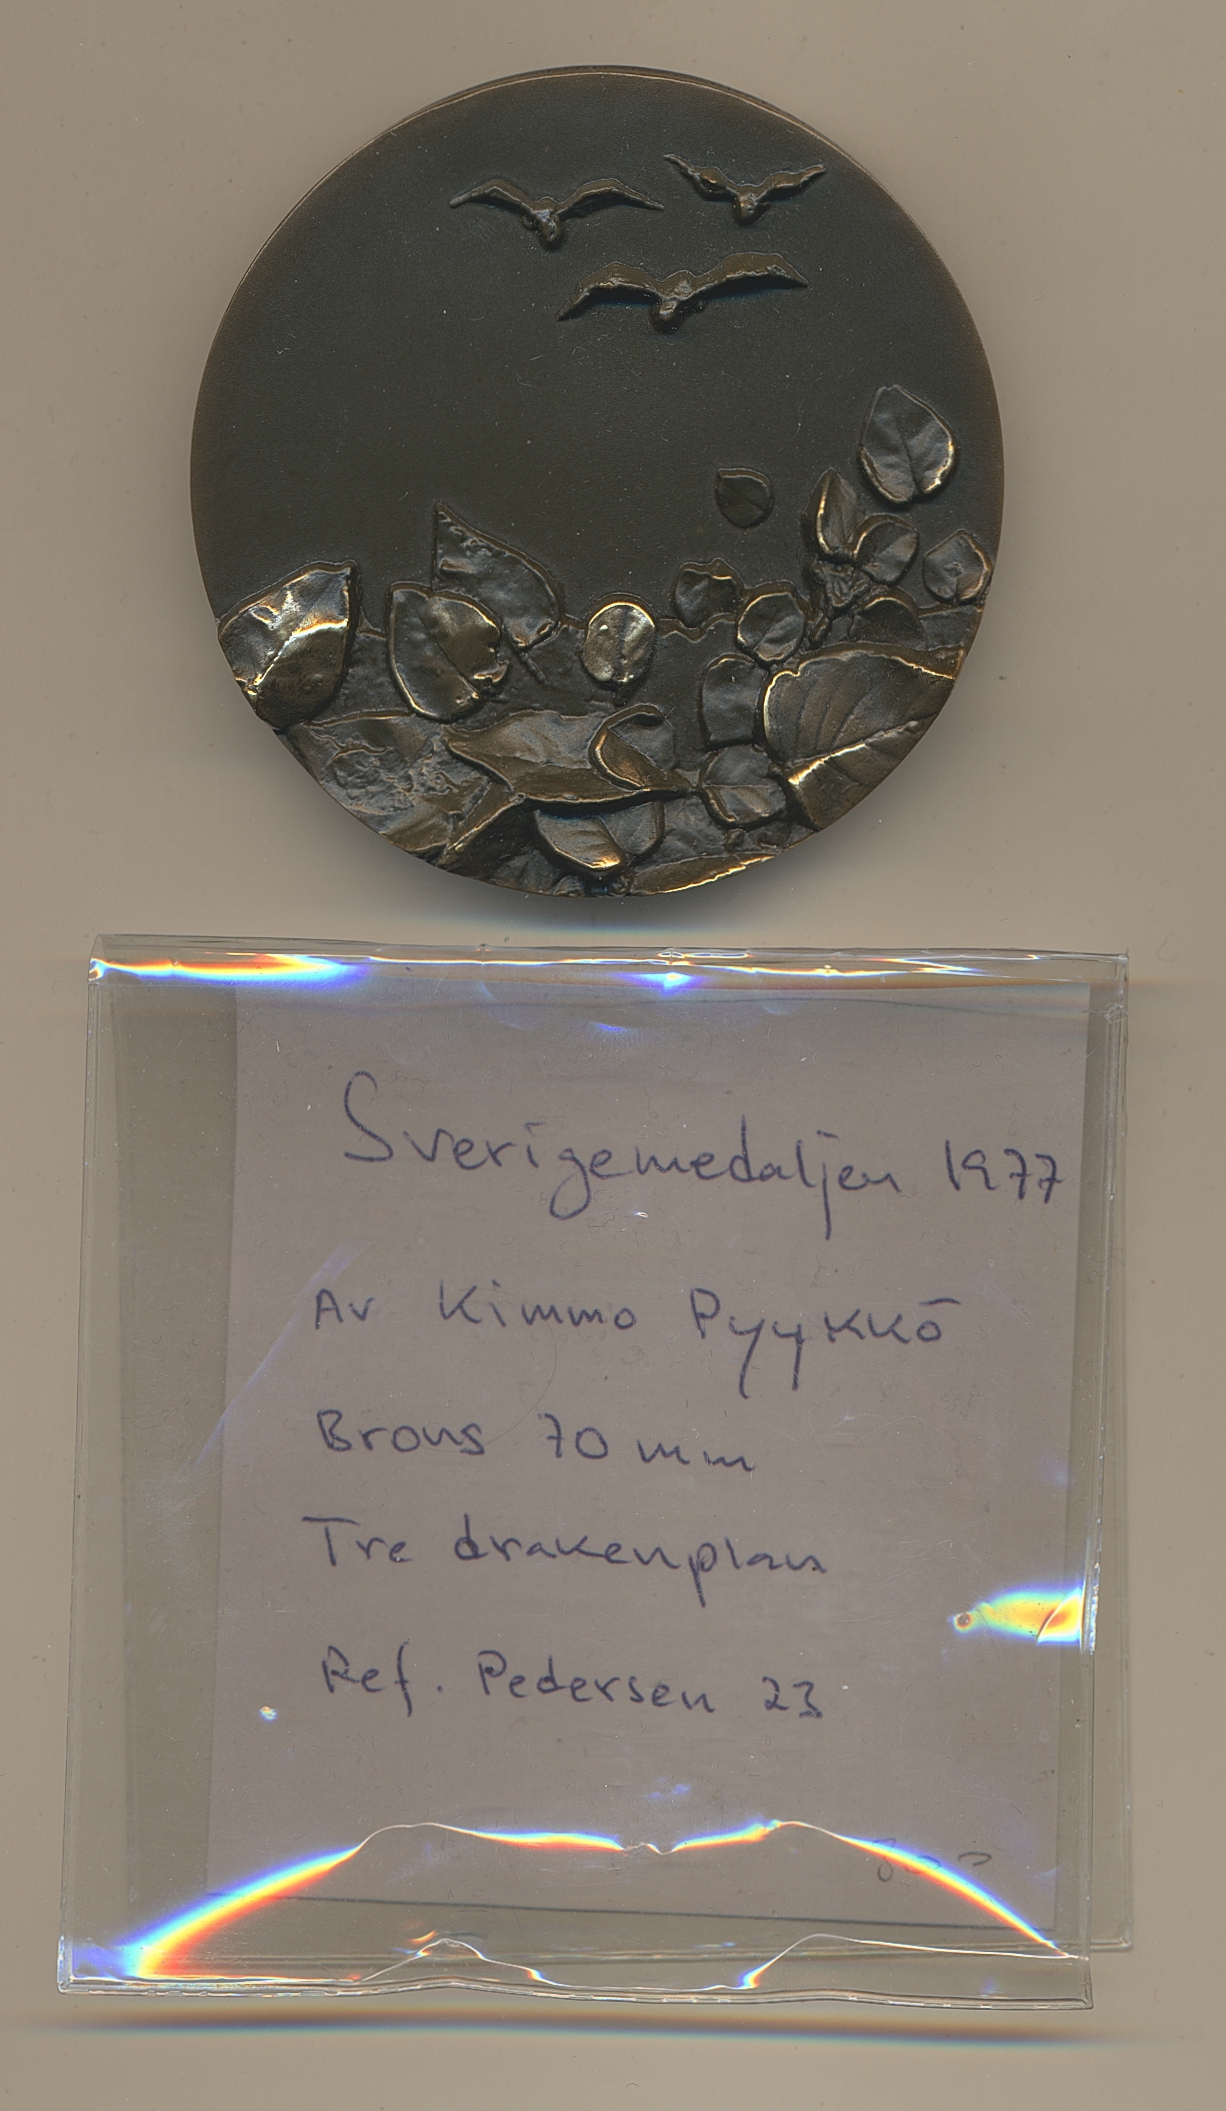 Sverigemedaljen 1977
Av Kimmo Pyykkö
Brons 70 mm
Tre drakenplan
Ref. Pedersen 23
800